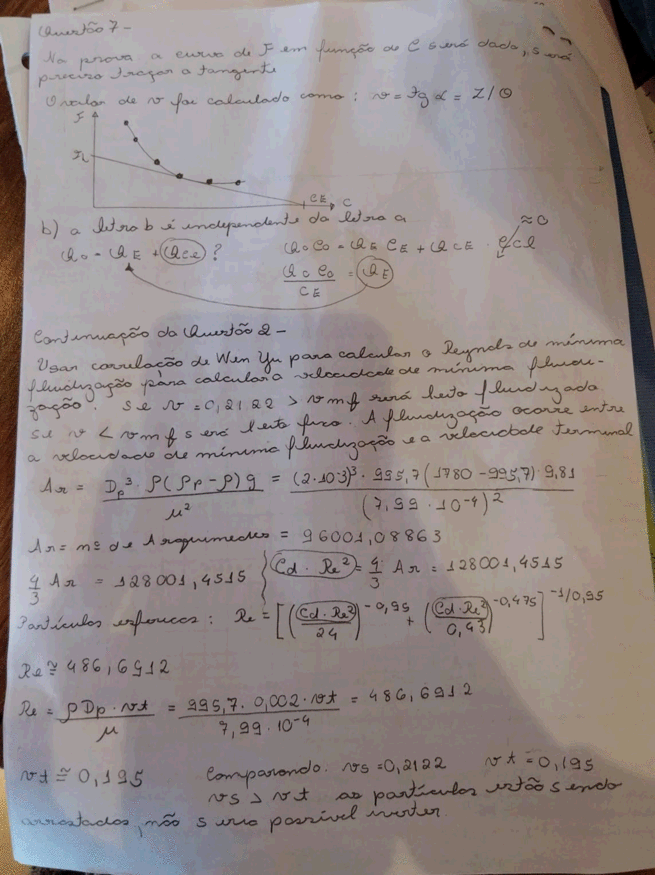 Questão 7 -
Na prova a curva de F em função de C será dada, será
preciso traçar a tangente
O valor de v foi calculado como: v = tg α = Z/θ
F
C E C
b) a letra b é independente da letra a
≈ 0
Q0 = QE + Qce ? Q0 C0 = QE CE + QCE · Ccl
Q0 C0 / CE = QE
Continuação da Questão 2 -
Usar correlação de Wen Yu para calcular o Reynolds de mínima
fluidização para calcular a velocidade de mínima fluidi-
zação. Se v = 0,2122 > vmf será leito fluidizado
se v < vmf será leito fixo. A fluidização ocorre entre
a velocidade de mínima fluidização e a velocidade terminal
Ar = Dp³ · ρ(ρp - ρ)g / μ² = (2·10⁻³)³ · 995,7 (1780 - 995,7) · 9,81 / (7,99 · 10⁻⁴)²
Ar = nº de Arquimedes = 96001,08863
4/3 Ar = 128001,4515 { Cd · Re² = 4/3 Ar = 128001,4515
Partículas esféricas: Re = [ ( (Cd·Re²) / 24 )^-0,95 + ( (Cd·Re²) / 0,43 )^-0,475 ]^-1/0,95
Re ≅ 486,6912
Re = ρDp · vt / μ = 995,7 · 0,002 · vt / 7,99 · 10⁻⁴ = 486,6912
vt ≅ 0,195 Comparando: vs = 0,2122 vt = 0,195
vs > vt as partículas estão sendo
arrastadas, não seria possível inverter.